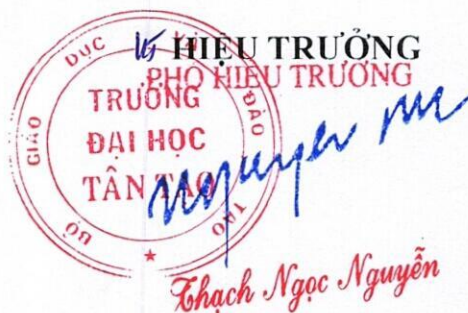 HIỆU TRƯỞNG
PHÓ HIỆU TRƯỞNG
BỘ GIÁO DỤC VÀ ĐÀO TẠO
TRƯỜNG
ĐẠI HỌC
TÂN TẠO
Nguyen
Thạch Ngọc Nguyễn